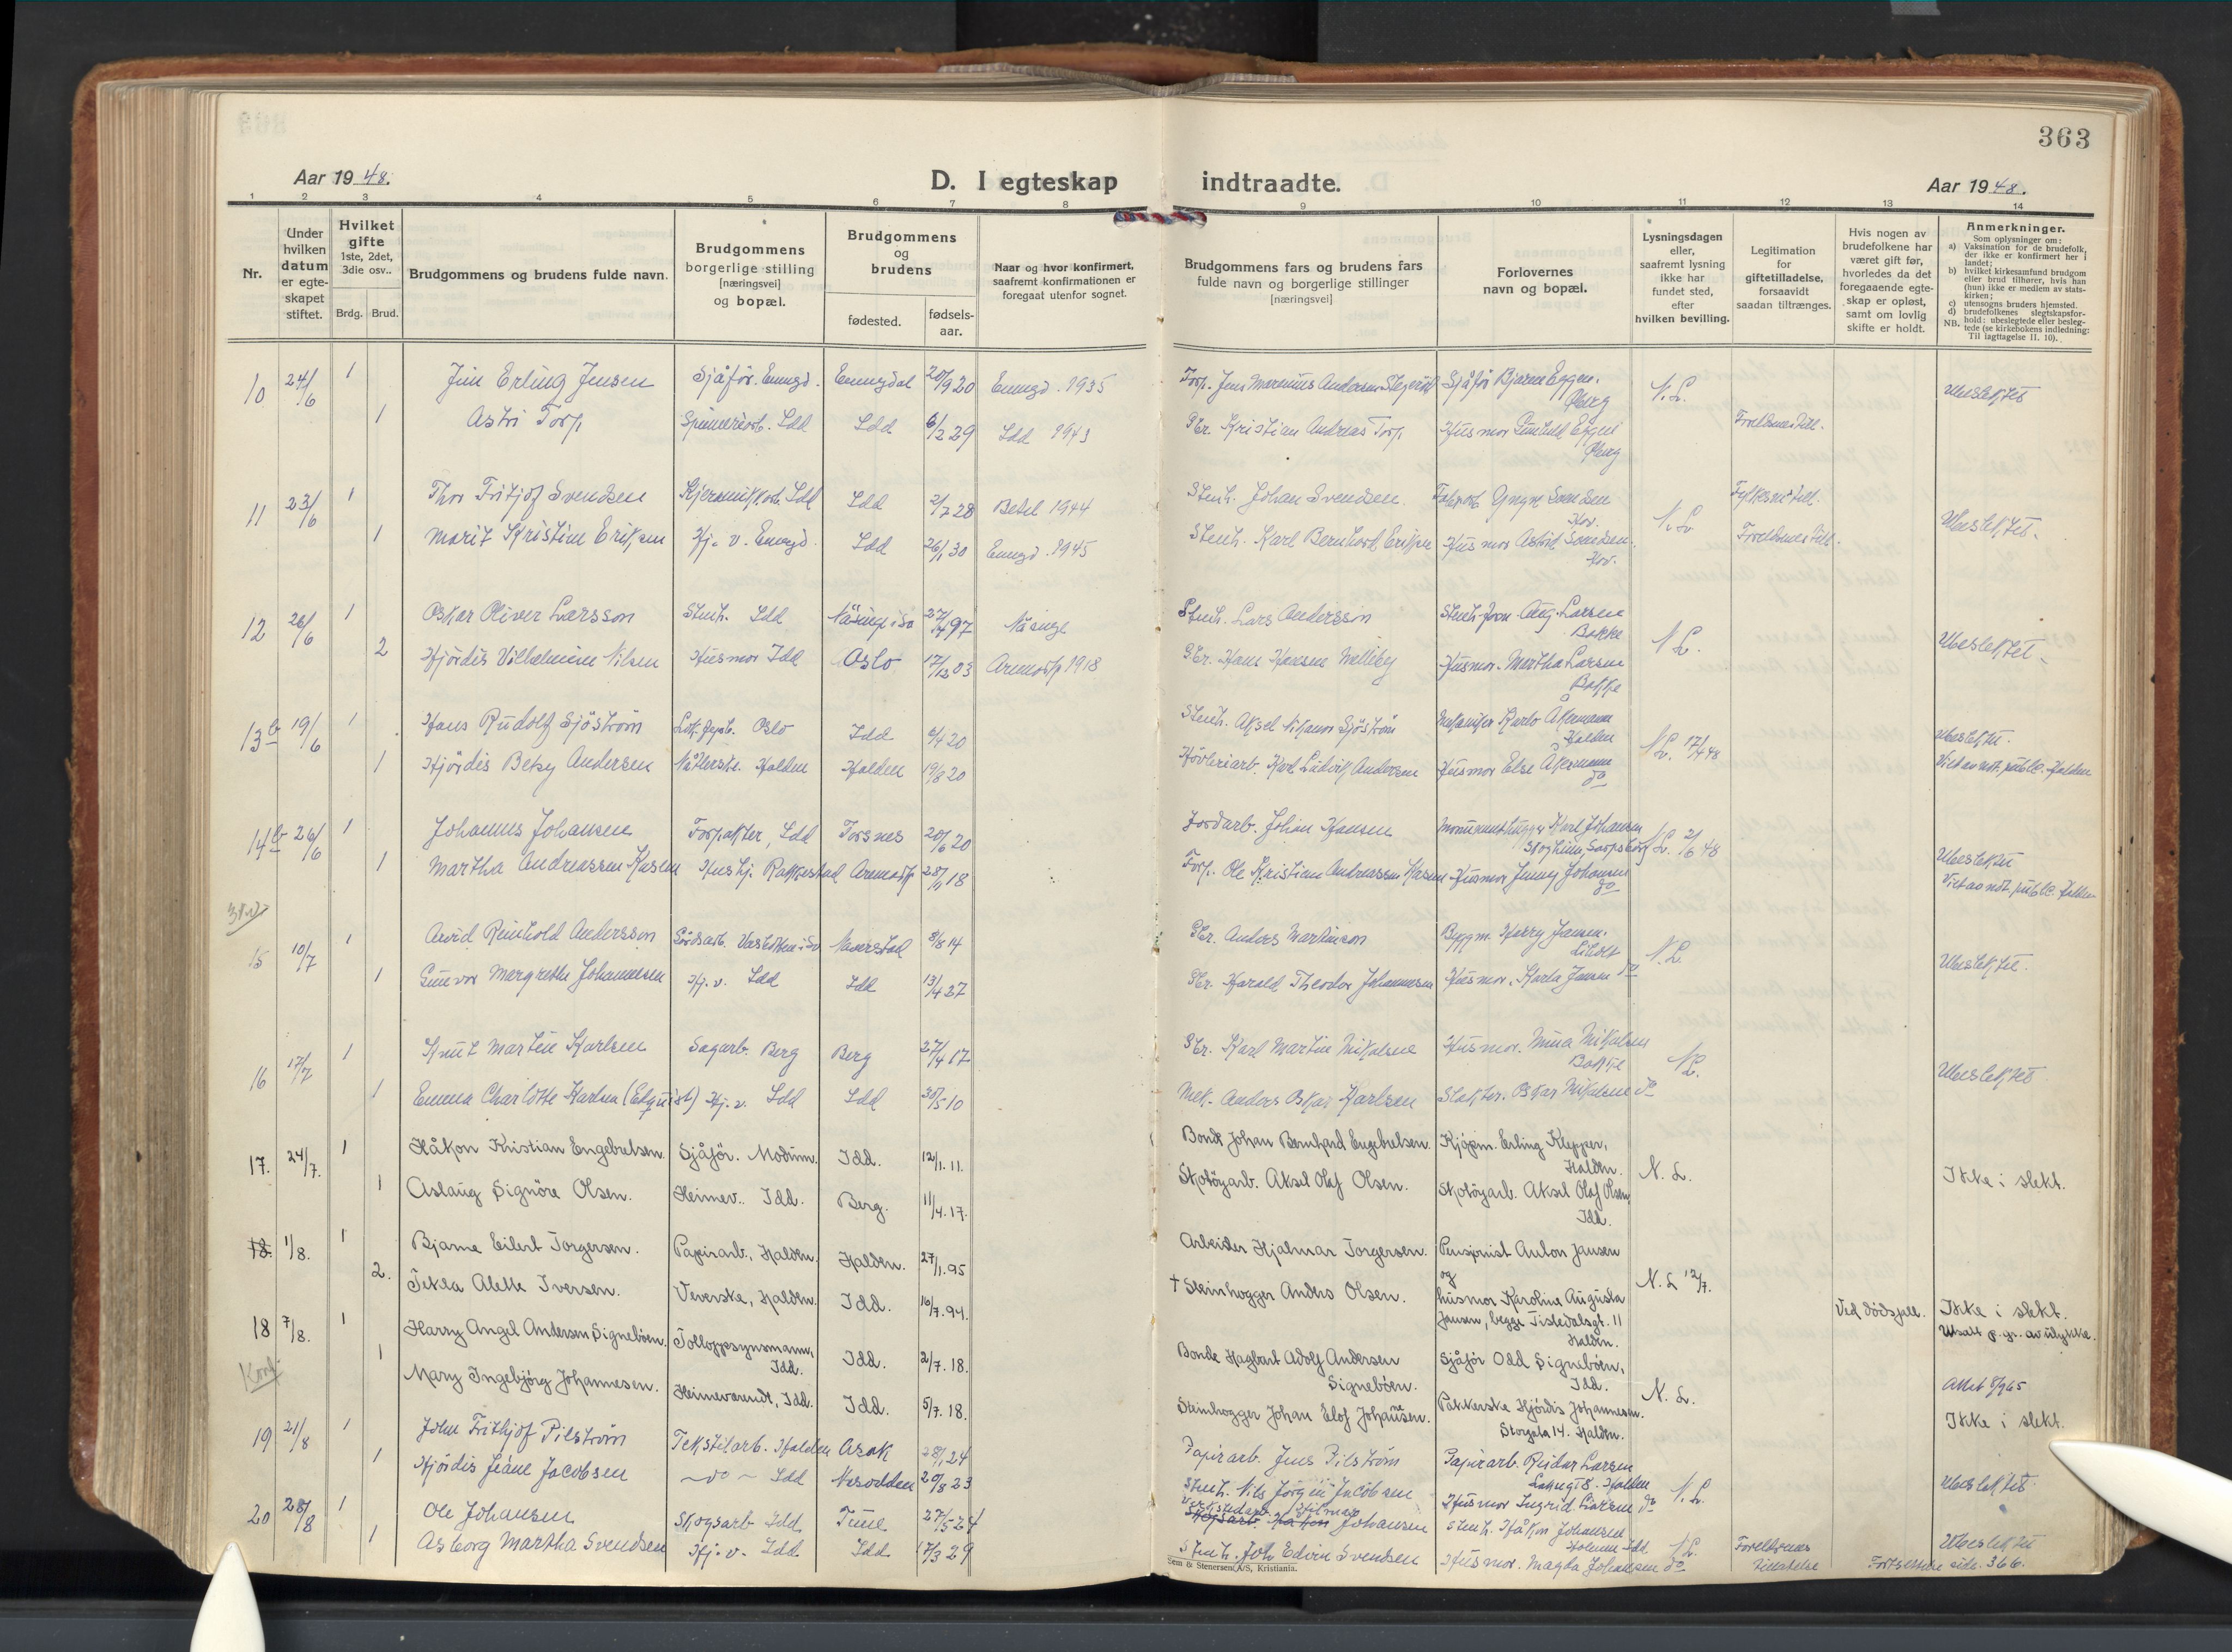 363
Aar 1948.
D. I egteskap indtraadte.
Aar 1948.
1 2 3 4 5 6 7 8 9 10 11 12 13 14
Nr.
Under hvilken datum er egte-skapet stiftet.
Hvilket gifte 1ste, 2det, 3die osv..
Brdg. Brud.
Brudgommens og brudens fulde navn.
Brudgommens borgerlige stilling [næringsvei] og bopæl.
Brudgommens og brudens
fødested.
fødsels-aar.
Naar og hvor konfirmert, saafremt konfirmationen er foregaat utenfor sognet.
Brudgommens fars og brudens fars fulde navn og borgerlige stillinger [næringsvei]
Forlovernes navn og bopæl.
Lysningsdagen eller, saafremt lysning ikke har fundet sted, efter hvilken bevilling.
Legitimation for giftetilladelse, forsaavidt saadan tiltrænges.
Hvis nogen av brudefolkene har været gift før, hvorledes da det foregaaende egte-skap er opløst, samt om lovlig skifte er holdt.
Anmerkninger.
Som oplysninger om:
a) Vaksination for de brudefolk, der ikke er konfirmert her i landet;
b) hvilket kirkesamfund brudgom eller brud tilhører, hvis han (hun) ikke er medlem av stats-kirken;
c) utensogns bruders hjemsted.
d) brudefolkenes slegtskapsfor-hold: ubeslegtede eller besleg-tede (se kirkebokens indledning:
NB. Til iagttagelse II. 10).
10 24/6 1 Jens Erling Jensen Sjåfør. Enngd. Enningdal 20/9 20 Enngd. 1935 Forp. Jens Marenius Andersen Sjåfør Bjarne Eggen. Øberg N. L. Ubeslektet
1 Astri Torp Spinneriarb. Idd Idd 6/2 29 Idd 1943 Gbr. Kristian Andreas Torp Husmor Gunhild Eggen Øberg Foreldrenes till.
11 23/6 1 Thor Fritjof Svendsen Idd Idd 2/7 28 Betel 1944 Stenh. Johan Svendsen Yngve Svendsen Hov. N. L. Fylkesm. till. Ubeslektet.
1 Marit Kristine Eriksen Hj. v. Enngd. Idd 26/1 30 Enngd. 1945 Stenh. Karl Bernhard Eriksen Husmor Astrid Svendsen. Hov. Foreldrenes till.
12 26/6 1 Oskar Oliver Larsson Stenh. Idd Näsinge i Sv. 97 Näsinge Stenh. Lars Andersson Stenh. Joon Aug. Larsen Bakke N. L. Ubeslektet
2 Hjördis Vilhelmine Nilsen Husmor Idd Oslo 17/12 03 Aremark 1918 Gbr. Hans Hansen Husmor. Martha Larsen Bakke
13b 19/6 1 Hans Rudolf Sjöström Oslo Idd 6/4 20 Stenh. Aksel Nikanor Sjöström Mekaniker Karlo Åkermann Halden N. L. 17/4 48 Ubeslektet.
1 Hjördis Betsy Andersen Halden Halden 19/8 20 Høvleriarb. Karl Ludvik Andersen Husmor Else Åkermann do Viet av not. public. Halden
14b 26/6 1 Johannes Johansen Forpakter, Idd Torsnes 20/6 20 Jordarb. Johan Hansen Monumenthugger Karl Johansen Sarpsborg N. L. 2/6 48 Ubeslektet
1 Martha Andreassen Kasen Hushj. Rakkestad Aremark 18 Forp. Ole Kristian Andreassen Kasen Husmor Jenny Johansen do Viet av not. public. Halden
15 10/7 1 Arvid Reinhold Andersson Naverstad 8/8 14 Gbr. Anders Martinson Byggm. Harry Jansen. N. L. Ubeslektet.
1 Gunvor Margrethe Johannesen Hj. v. Idd Idd 13/4 27 Gbr. Harald Theodor Johannesen Husmor. Karla Jansen do
16 17/7 1 Knut Martin Karlsen Sagarb. Berg Berg 27/4 17 Gbr. Karl Martin Mikalsen Husmor. Mina Mikalsen Bakke N. L. Ubeslektet
1 Emma Charlotte Karlsen (Edquist) Hj. v. Idd Idd 30/5 10 Mek. Anders Oskar Karlsen Slakter. Oskar Mikalsen do
17. 24/7. 1 Håkon Kristian Engebretsen. Sjåför. Modum. Idd. 12/1. 11. Bonde Johan Bernhard Engebretsen. Kjöpm. Erling Klepper, Halden. N. L. Ikke i slekt.
1 Aslaug Signöre Olsen. Heimev. Idd. Berg. 11/4. 17. Skotöyarb. Aksel Olaf Olsen. Skotöyarb. Aksel Olaf Olsen, Idd.
18. 1/8. 1 Bjarne Eilert Torgersen. Papirarb., Halden. Halden. 27/1. 95 Arbeider Hjalmar Torgersen. Pensjonist Anton Jansen
2. Tekla Alette Iversen. Veverske, Halden. Idd. 16/7. 94. † Steinhogger Anders Olsen. og husmor Karoline Augusta Jansen, begge Tistedalsgt. 11 Halden. N. L 12/7. Ved dödsfall. Ikke i slekt.
Utsatt p. gr. av ulykke.
18 7/8. 1 Harry Angel Andersen Signebøen. Tolloppsynsmann, Idd. Idd. 2/7. 18. Bonde Hagbart Adolf Andersen Signebøen. Sjåfør Odd Signebøen, Idd. N. L. Attest 8/9 65
Konf.
1 Mary Ingebjørg Johannesen. Heimeværende, Idd. Idd. 5/7. 18. Steinhogger Johan Elof Johansen. Pakkerske Hjördis Johannesen. Storgata 14. Halden. Ikke i slekt.
19 21/8 1 John Frithjof Pilström Tekstilarb. Halden Asak 28/1 24 Papirarb. Jens Pilström Papirarb. Reidar Larsen Halden N. L. Ubeslektet
1 Hjördis Jeane Jacobsen do Idd Nesodden 20/8 23 Stenh. Nils Jörgen Jacobsen Husmor Ingrid Larsen do
20 28/8 1 Ole Johansen Skogsarb Idd Tune 27/5 24 Verkstedarb. Hilmar Skogsarb. Håkon Johansen Stenh. Håkon Johansen Idd. N. L. Foreldrenes tillatelse Ubeslektet
1 Asborg Martha Svendsen Hj. v. Idd Idd 17/3 29 Stenh. Joh Edvin Svendsen Husmor. Magda Johansen do
Fortsettes side. 366.
Sem & Stenersen A/S, Kristiania.